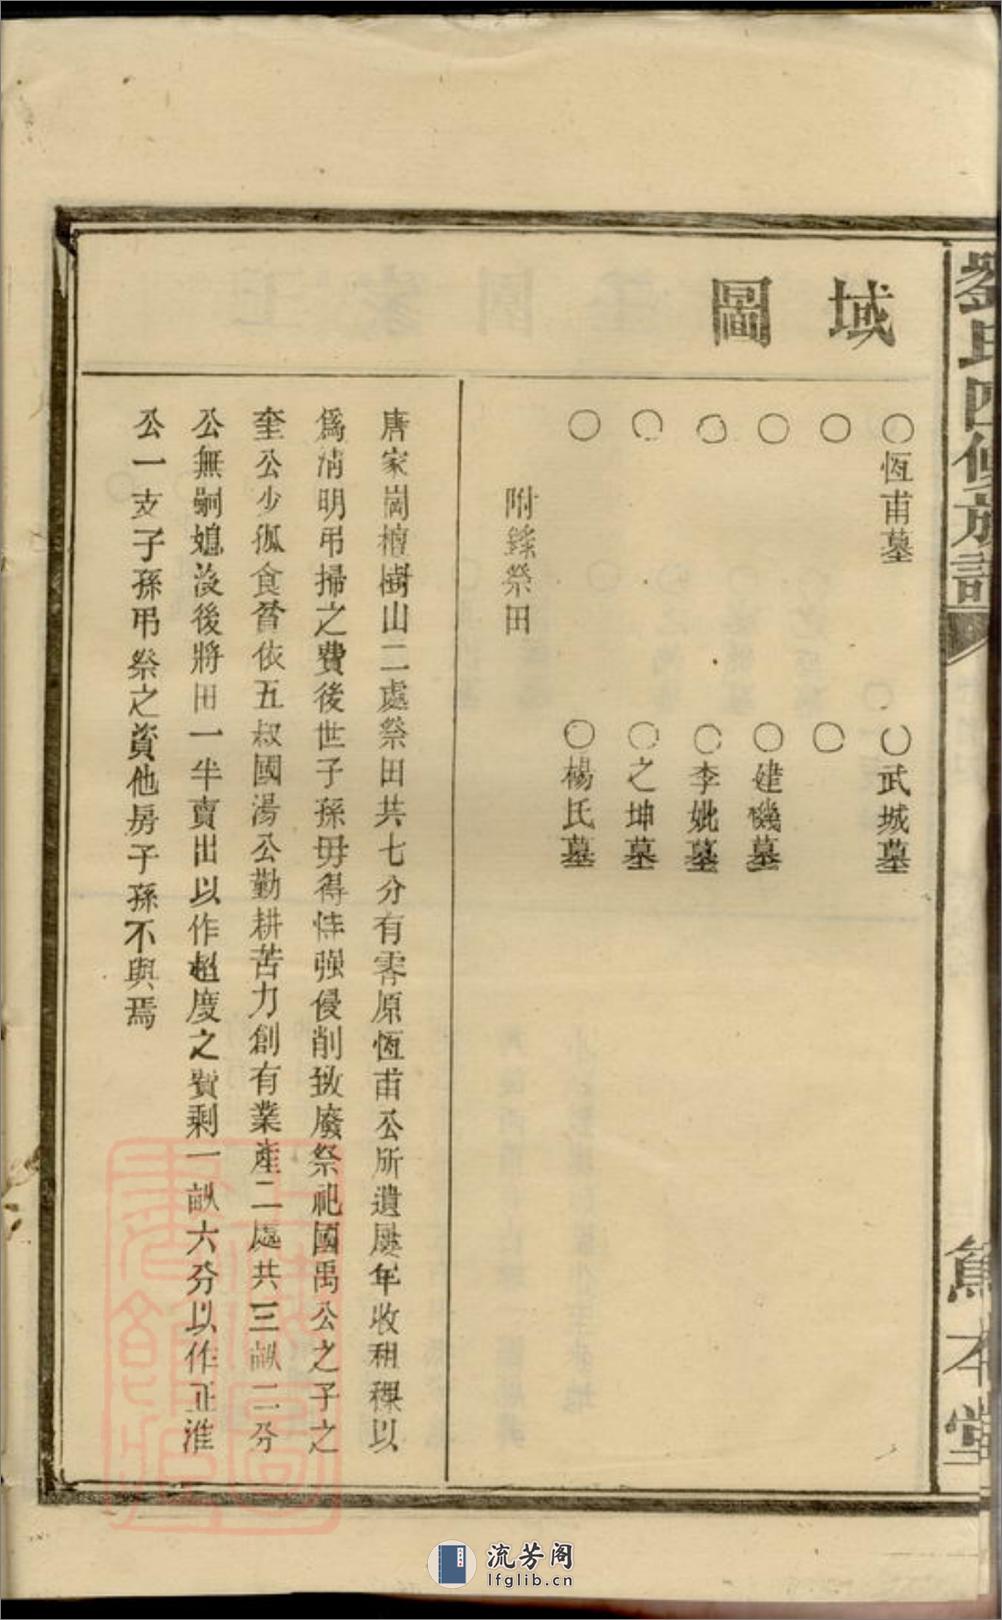 劉氏四修族譜
篤本堂
域圖
〇恆甫墓
〇武城墓
〇
〇
〇
〇建磯墓
〇
〇李妣墓
〇
〇之坤墓
〇
〇楊氏墓
附錄祭田
唐家崗檀樹山二處祭田共七分有零原恆甫公所遺屢年收租稞以
爲淸明弔掃之費後世子孫毋得恃强侵削致廢祭祀國禹公之子之
奎公少孤食貧依五叔國湯公勤耕苦力創有業產二處共三畝二分
公無嗣媳沒後將田一半賣出以作超度之費剩一畝六分以作正淮
公一支子孫弔祭之資他房子孫不與焉
流芳阁
lfglib.cn